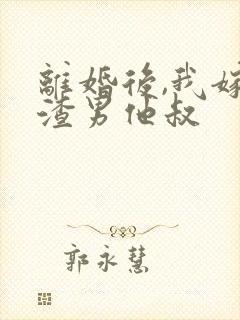 離婚後,我嫁
渣男他叔
郭永慧